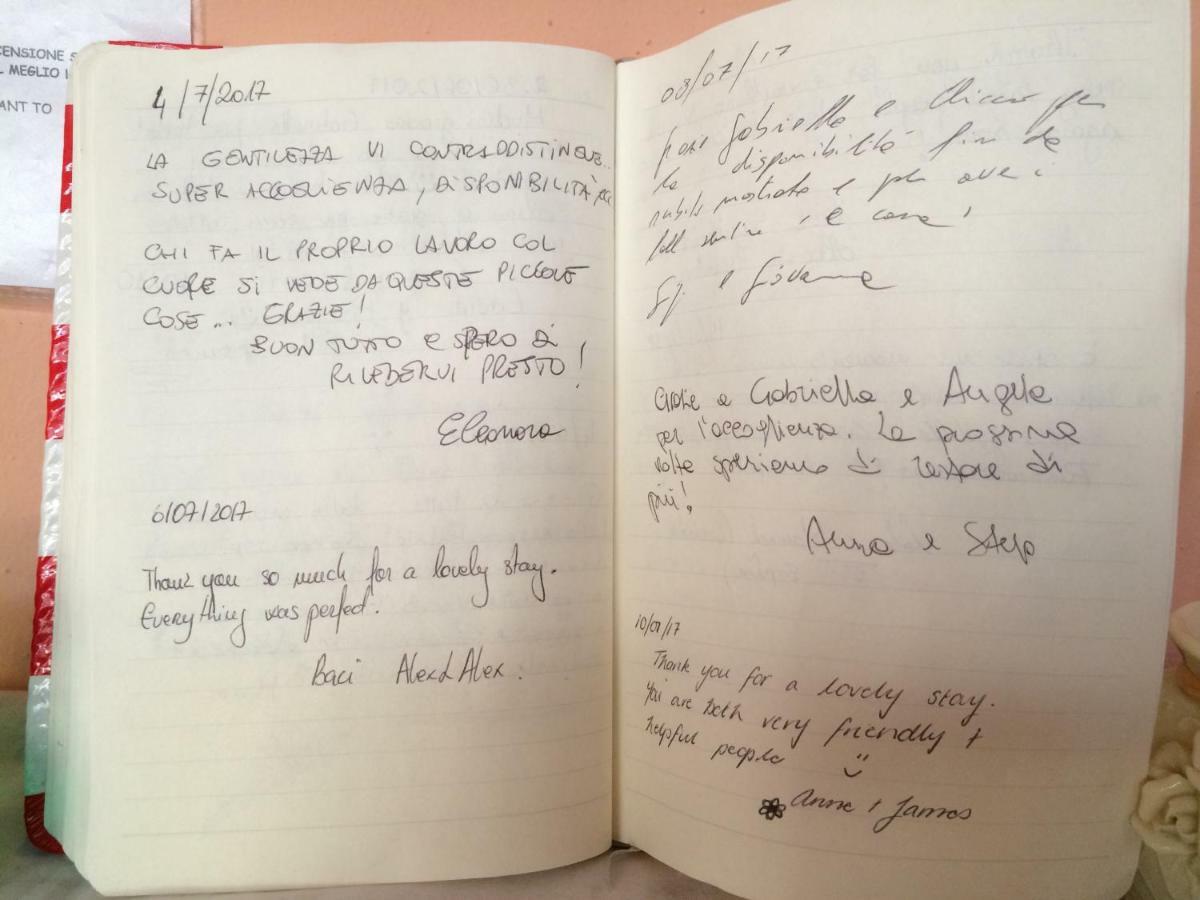 CENSIONE S
L MEGLIO I
ANT TO
4/7/2017
LA GENTILEZZA VI CONTRADDISTINGUE...
SUPER ACCOGLIENZA, DISPONIBILITÀ
CHI FA IL PROPRIO LAVORO COL
CUORE SI VEDE DA QUESTE PICCOLE
COSE... GRAZIE!
BUON TUTTO E SPERO DI
RIVEDERVI PRESTO!
Eleonora
6/07/2017
Thank you so much for a lovely stay.
Everything was perfect.
Baci Alex & Alex.
08/07/17
Gabriella e per
la disponibilità fin da
subito mostrata e per averci
fatt sentire a casa!
e Giovanna
Grazie a Gabriella e Angelo
per l'accoglienza. La prossima
volta speriamo di restare di
più!
Anna e Stefo
10/07/17
Thank you for a lovely stay.
You are both very friendly +
helpful people
Anne + James